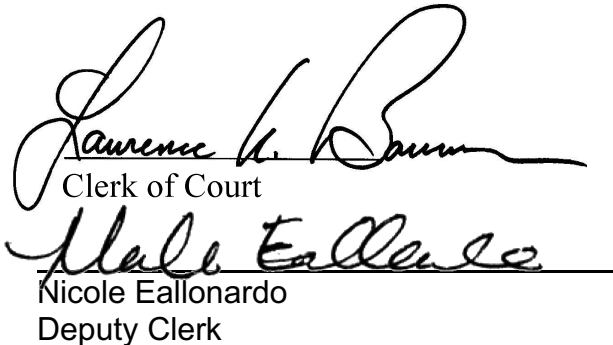 Lawrence K. Baerman
Clerk of Court
Nicole Eallonardo
Nicole Eallonardo
Deputy Clerk